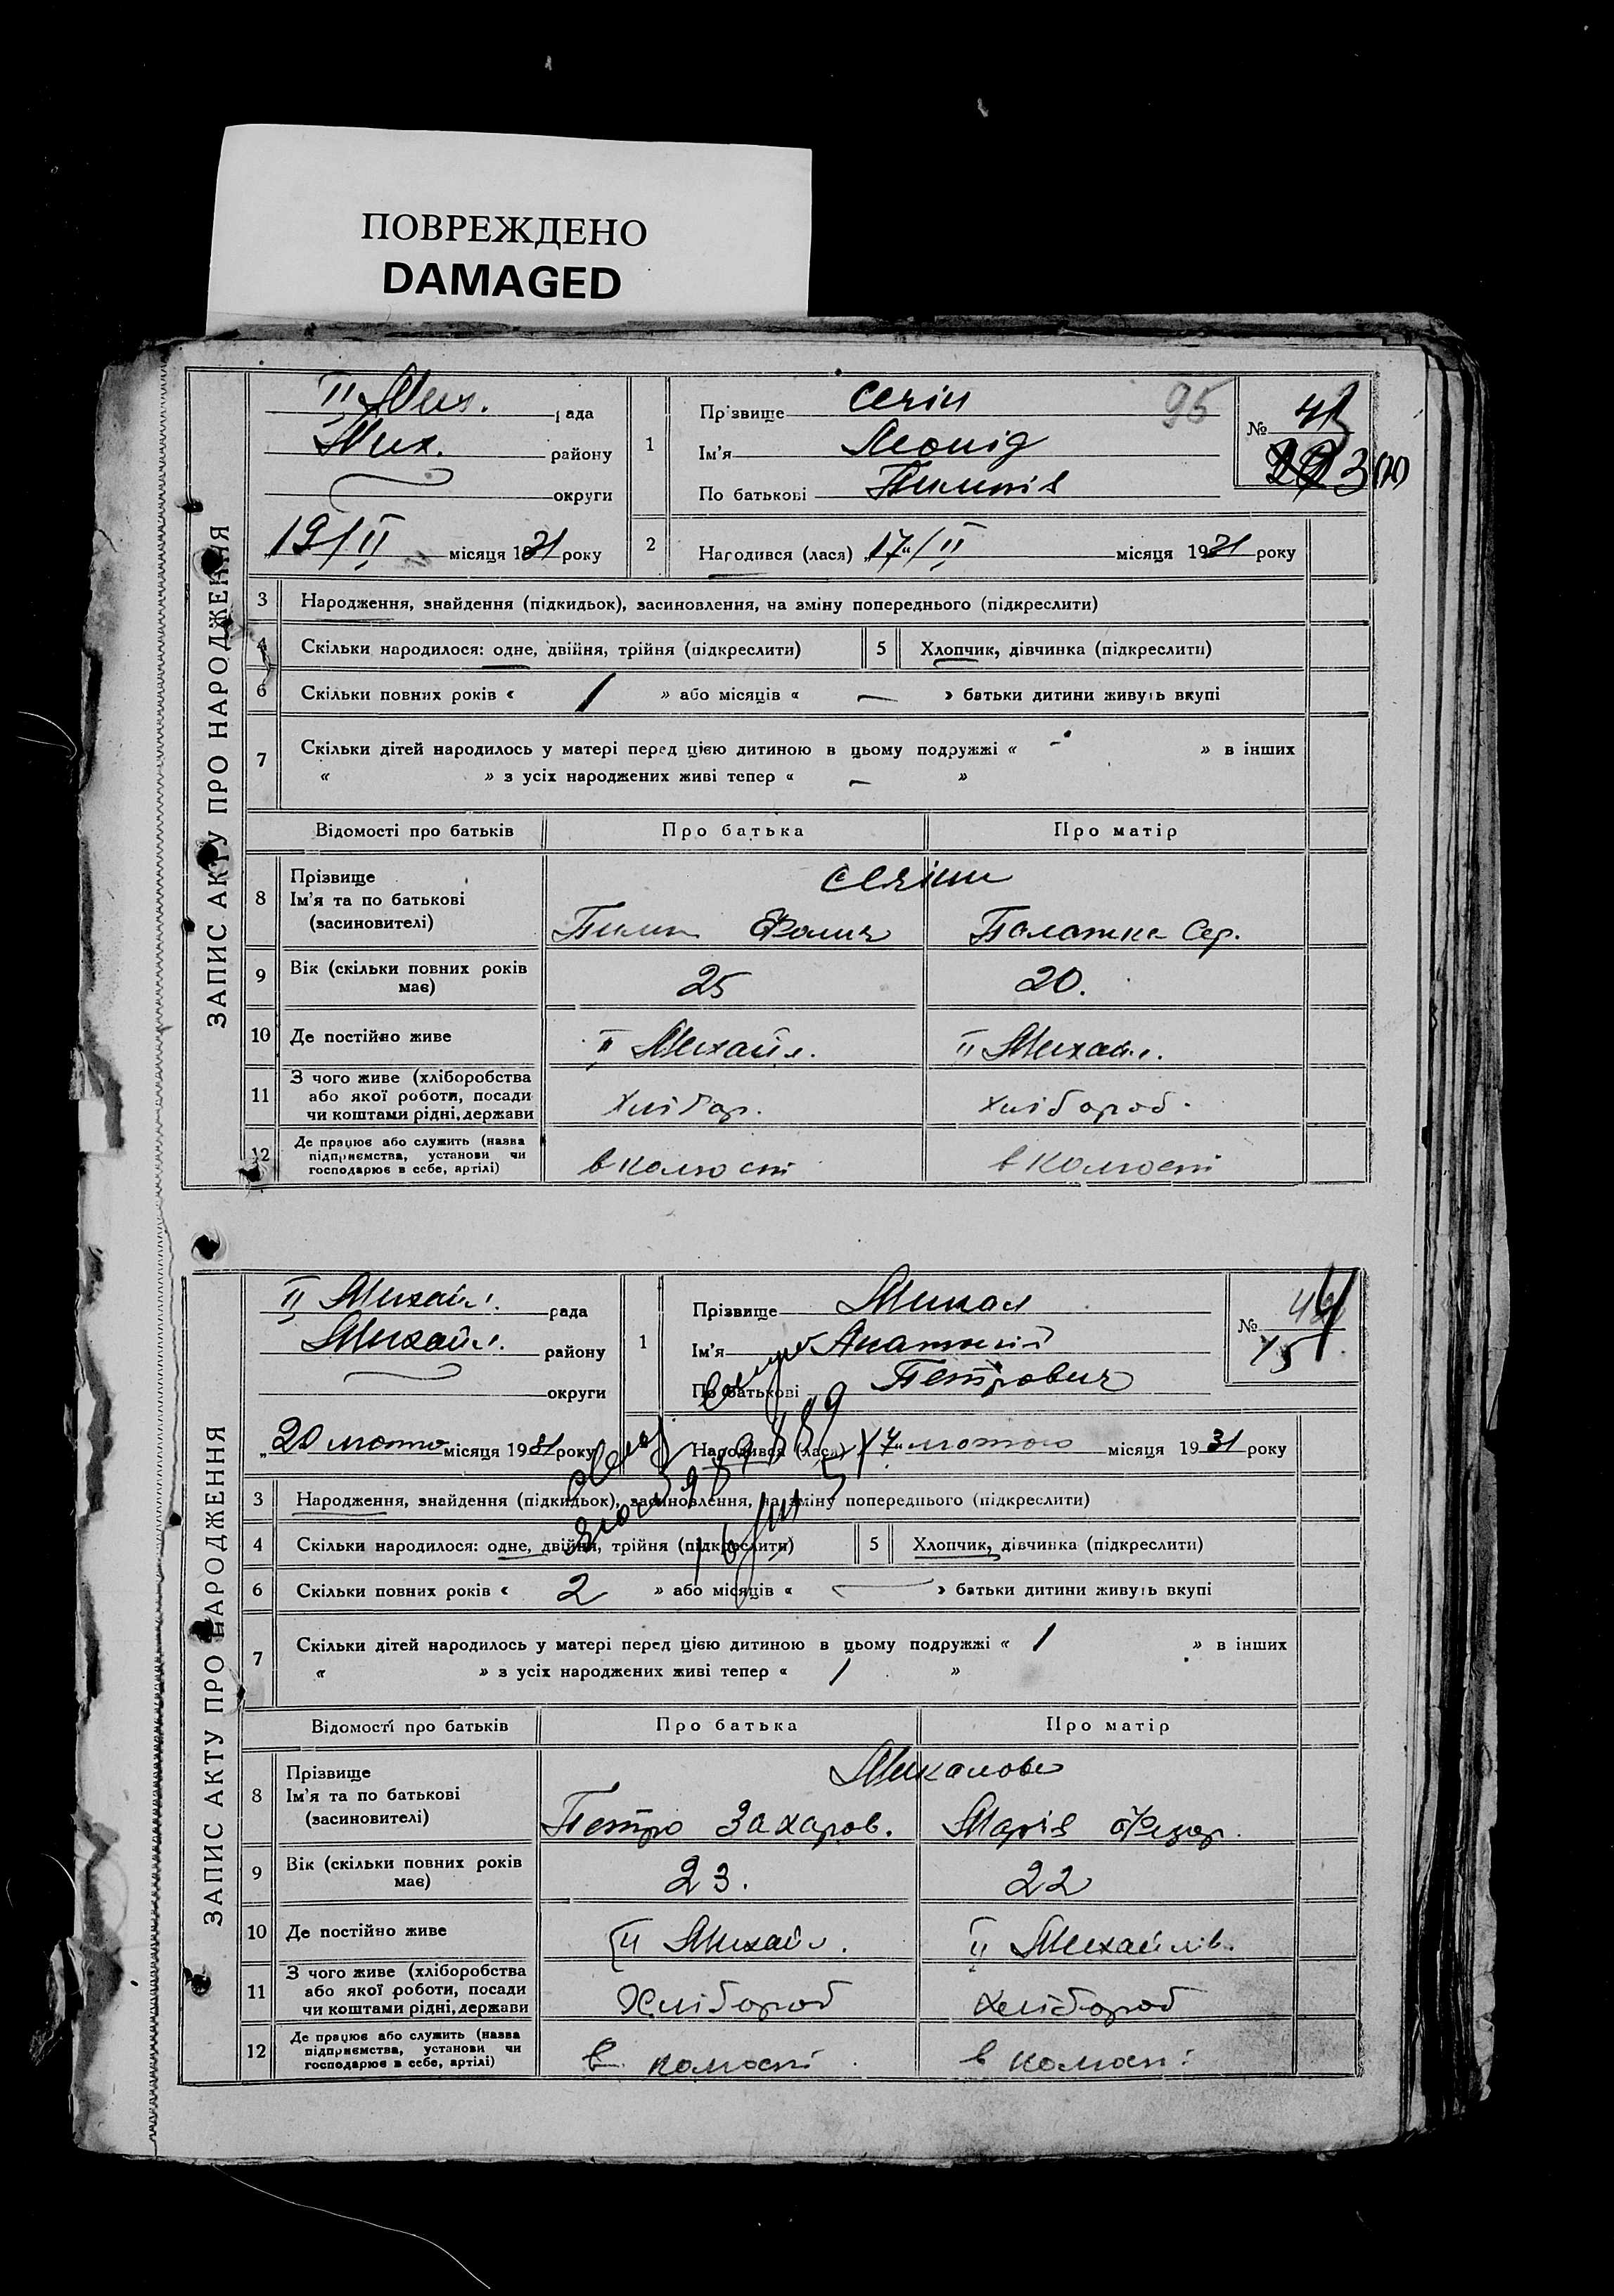 ПОВРЕЖДЕНО
DAMAGED
ЗАПИС АКТУ ПРО НАРОДЖЕННЯ
II Мих. рада
Мих. району
округи
19/II місяця 1931 року
1
Прізвище
Ім'я Леонід
По батькові
95
№
2 Народився (лася) „17“/II місяця 1931 року
3 Народження, знайдення (підкидьок), засиновлення, на зміну попереднього (підкреслити)
4 Скільки народилося: одне, двійня, трійня (підкреслити) 5 Хлопчик, дівчинка (підкреслити)
6 Скільки повних років « 1 » або місяців « — » батьки дитини живуть вкупі
7 Скільки дітей народилось у матері перед цією дитиною в цьому подружжі « - » в інших
« » з усіх народжених живі тепер « – »
Відомості про батьків Про батька Про матір
8 Прізвище
Ім'я та по батькові
(засиновителі)
Палажка Сер.
9 Вік (скільки повних років має) 25 20.
10 Де постійно живе II Михайл. II Михайл.
11 З чого живе (хліборобства або якої роботи, посади чи коштами рідні, держави Хлібор. Хлібороб.
12 Де працює або служить (назва підприємства, установи чи господарює в себе, артілі) в колгоспі в колгоспі
ЗАПИС АКТУ ПРО НАРОДЖЕННЯ
II Михайл. рада
Михайл. району
округи
„20 лютого місяця 1931 року
1
Прізвище
Ім'я Анатолій
По батькові Петрович
№
Народився (лася) „17“ лютого місяця 1931 року
3 Народження, знайдення (підкидьок), засиновлення, на зміну попереднього (підкреслити)
4 Скільки народилося: одне, двійня, трійня (підкреслити) 5 Хлопчик, дівчинка (підкреслити)
6 Скільки повних років « 2 » або місяців « — » батьки дитини живуть вкупі
7 Скільки дітей народилось у матері перед цією дитиною в цьому подружжі « 1 » в інших
« » з усіх народжених живі тепер « 1 »
Відомості про батьків Про батька Про матір
8 Прізвище
Ім'я та по батькові
(засиновителі)
Петро Захаров. Марія Федор.
9 Вік (скільки повних років має) 23. 22
10 Де постійно живе II Михайл. II Михайлів.
11 З чого живе (хліборобства або якої роботи, посади чи коштами рідні, держави Хлібороб Хлібороб
12 Де працює або служить (назва підприємства, установи чи господарює в себе, артілі) в колгоспі в колгоспі